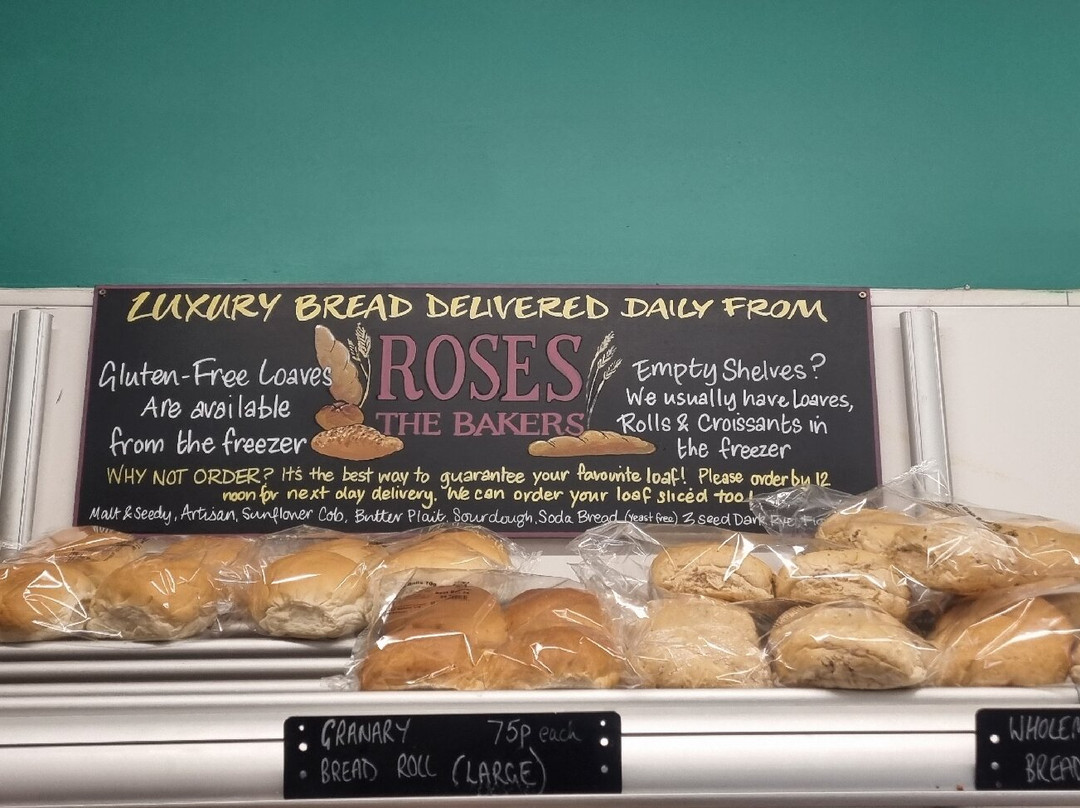 LUXURY BREAD DELIVERED DAILY FROM
ROSES
THE BAKERS
Gluten-Free Loaves
Are available
from the freezer
Empty Shelves?
We usually have Loaves,
Rolls & Croissants in
the freezer
WHY NOT ORDER? It's the best way to guarantee your favourite loaf! Please order by 12
noon for next day delivery. We can order your loaf sliced too!
Malt & Seedy, Artisan, Sunflower Cob, Butter Plait, Sourdough, Soda Bread (yeast free) 3 seed Dark Rye,
GRANARY 75p each
BREAD ROLL (LARGE)
BREAD